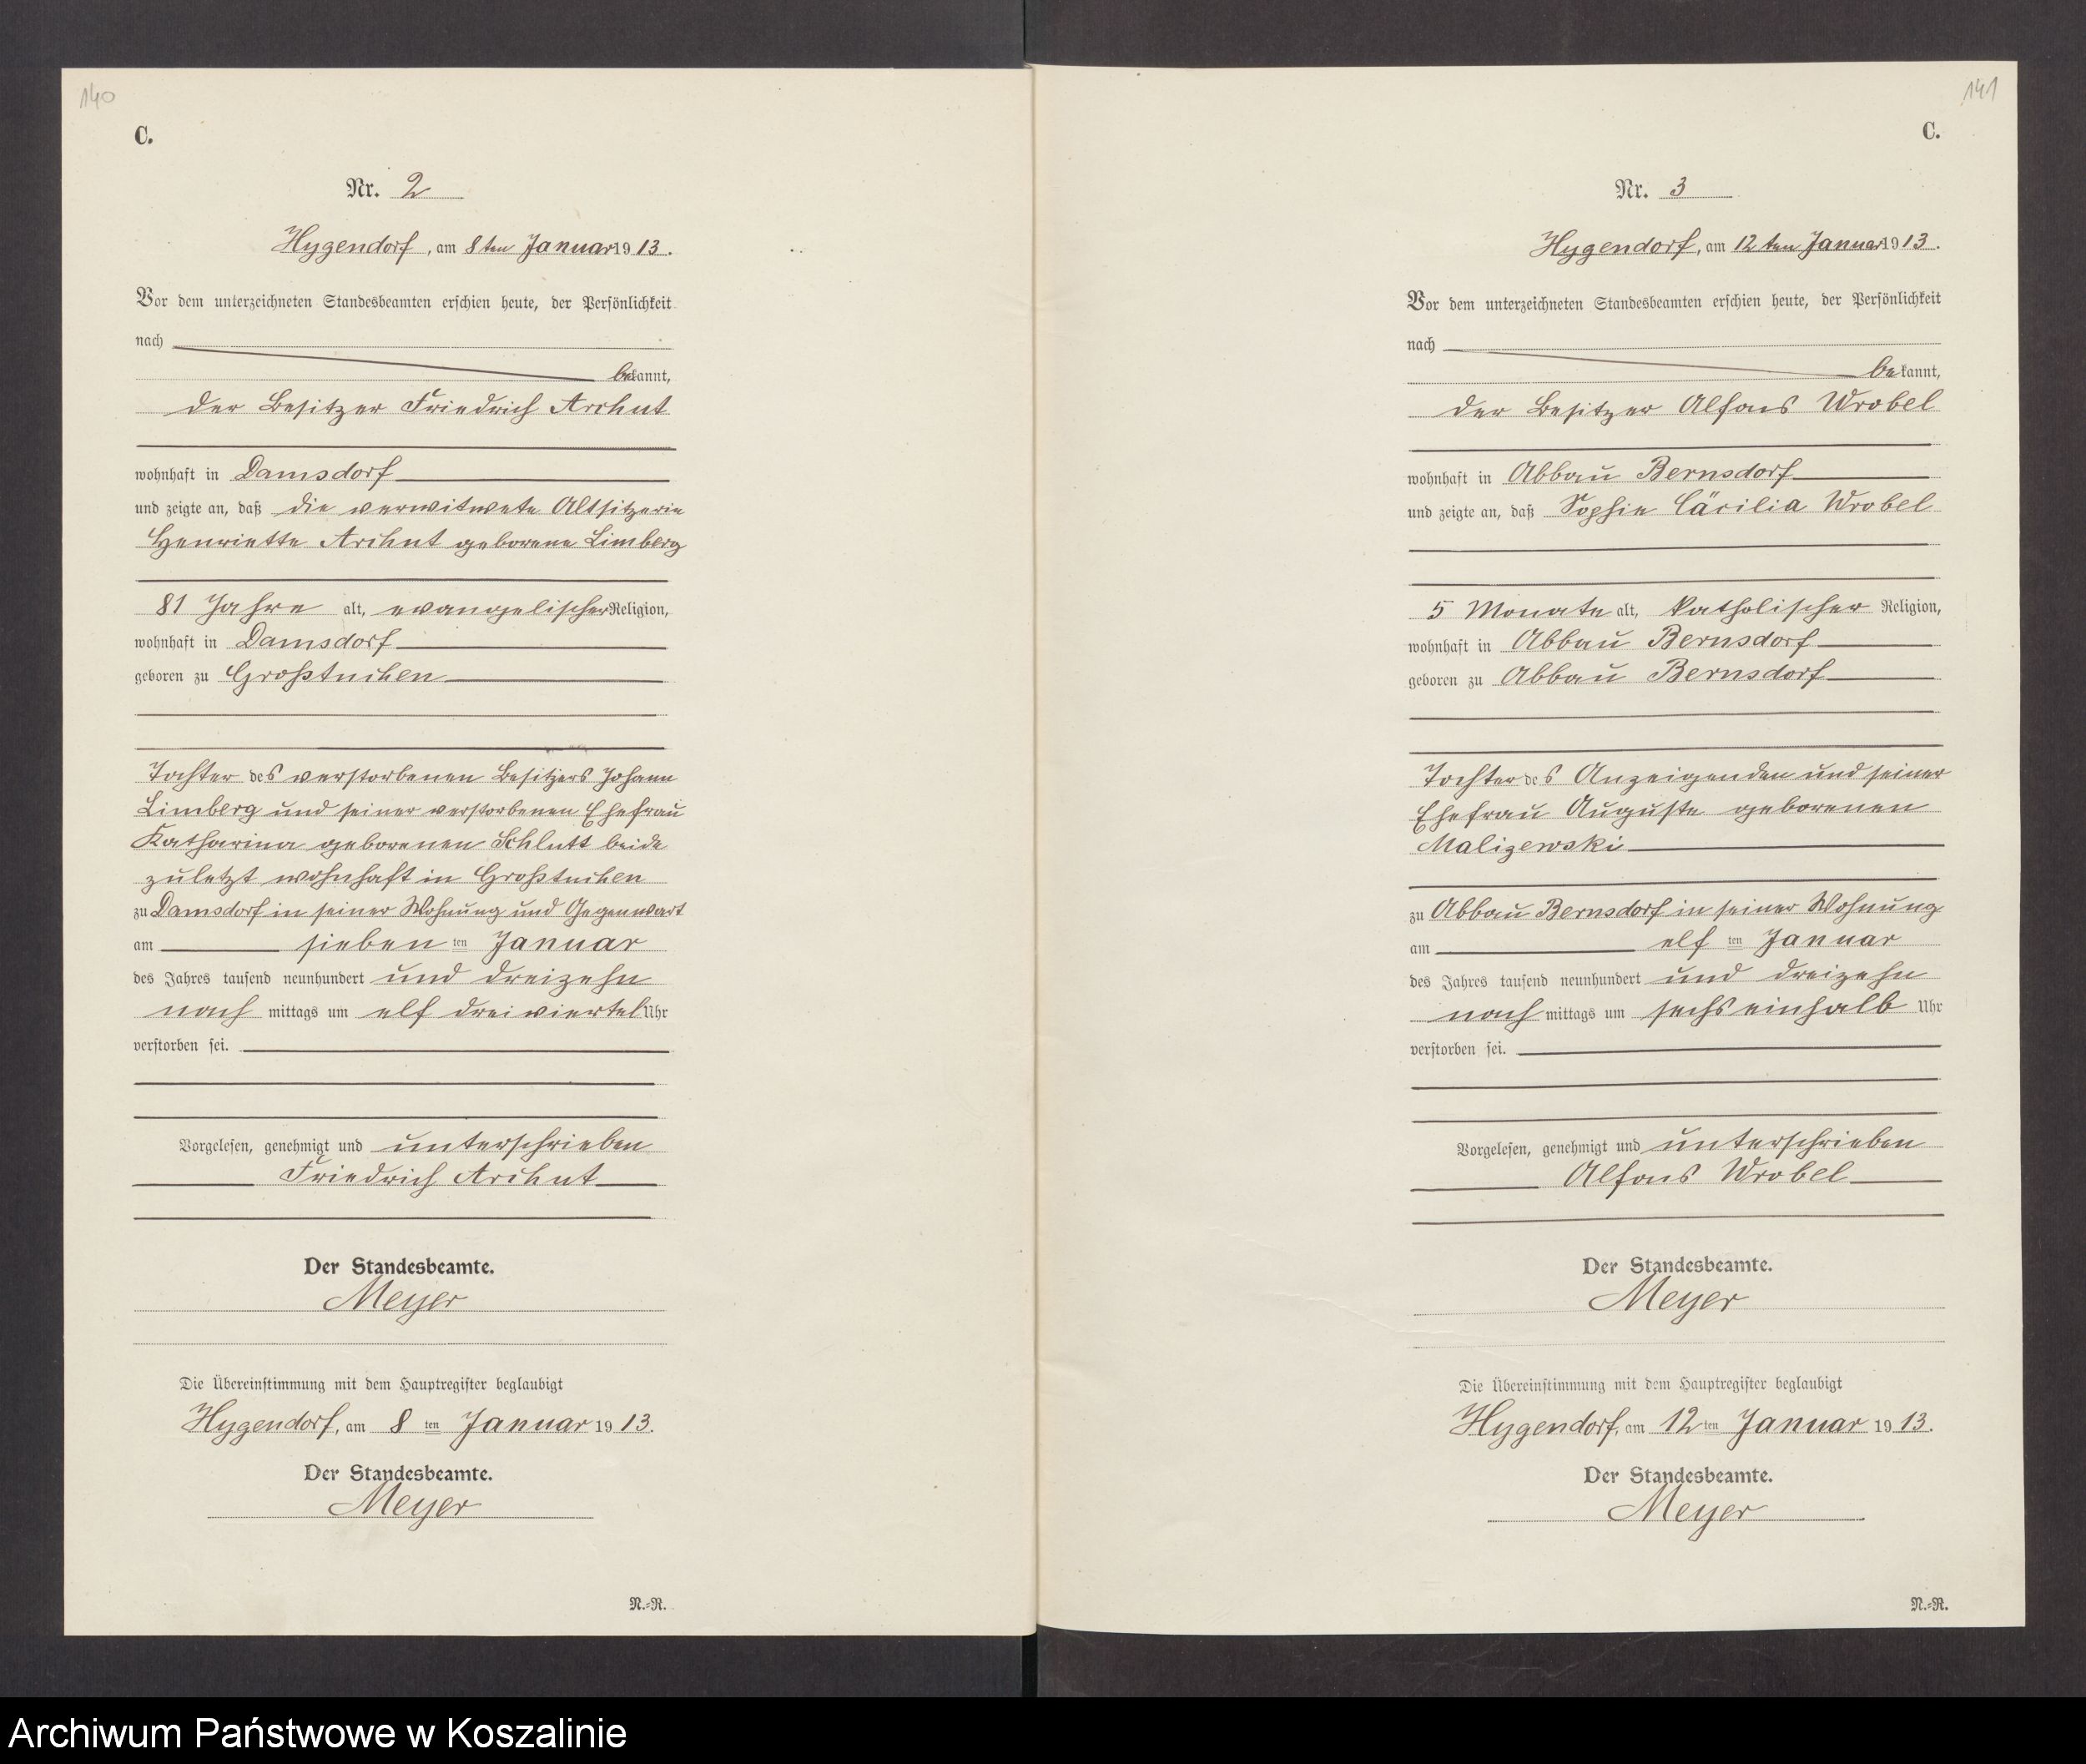 140
C.
Nr. 2
Hygendorf, am 8ten Januar 1913.
Vor dem unterzeichneten Standesbeamten erschien heute, der Persönlichkeit
nach
bekannt,
der Besitzer Friedrich Archut
wohnhaft in Damsdorf
und zeigte an, daß die verwitwete Altsitzerin
Henriette Archut geborene Limberg
81 Jahre alt, evangelischer Religion,
wohnhaft in Damsdorf
geboren zu Großtuchen
Tochter des verstorbenen Besitzers Johann
Limberg und seiner verstorbenen Ehefrau
Katharina geborenen Schlutt beide
zuletzt wohnhaft in Großtuchen
zu Damsdorf in seiner Wohnung und Gegenwart
am sieben ten Januar
des Jahres tausend neunhundert und dreizehn
nach mittags um elf dreiviertel Uhr
verstorben sei.
Vorgelesen, genehmigt und unterschrieben
Friedrich Archut
Der Standesbeamte.
Meyer
Die Übereinstimmung mit dem Hauptregister beglaubigt
Hygendorf, am 8 ten Januar 1913.
Der Standesbeamte.
Meyer
N.=R.
141
C.
Nr. 3
Hygendorf, am 12ten Januar 1913.
Vor dem unterzeichneten Standesbeamten erschien heute, der Persönlichkeit
nach
bekannt,
der Besitzer Alfons Wrobel
wohnhaft in Abbau Bernsdorf
und zeigte an, daß Sophie Cäcilia Wrobel
5 Monate alt, katholischer Religion,
wohnhaft in Abbau Bernsdorf
geboren zu Abbau Bernsdorf
Tochter des Anzeigenden und seiner
Ehefrau Auguste geborenen
Malizewski
zu Abbau Bernsdorf in seiner Wohnung
am elf ten Januar
des Jahres tausend neunhundert und dreizehn
nach mittags um sechs einhalb Uhr
verstorben sei.
Vorgelesen, genehmigt und unterschrieben
Alfons Wrobel
Der Standesbeamte.
Meyer
Die Übereinstimmung mit dem Hauptregister beglaubigt
Hygendorf, am 12 ten Januar 1913.
Der Standesbeamte.
Meyer
N.=R.
Archiwum Państwowe w Koszalinie